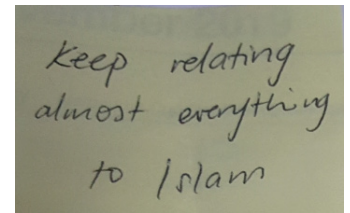 Keep relating
almost everything
to Islam